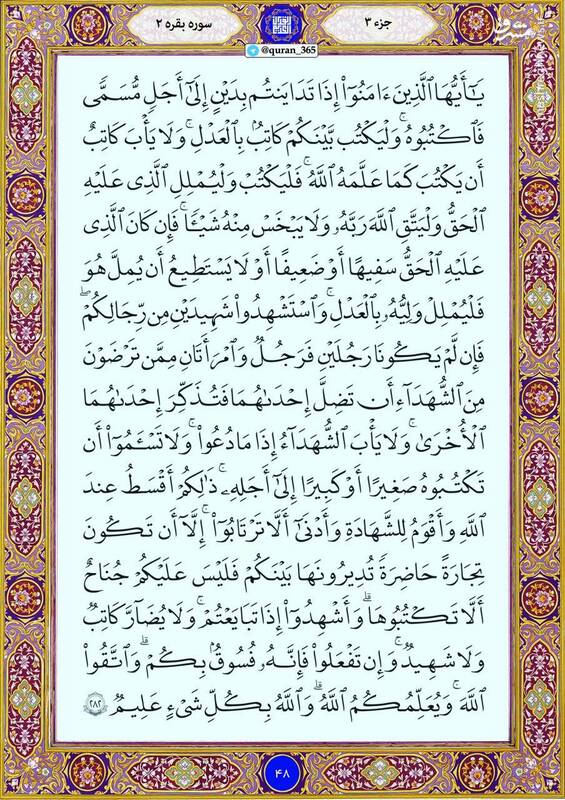 جزء ۳
سوره بقره ۲
@quran_365
يَـٰٓأَيُّهَا ٱلَّذِينَ ءَامَنُوٓا۟ إِذَا تَدَايَنتُم بِدَيْنٍ إِلَىٰٓ أَجَلٍ مُّسَمًّى
فَٱكْتُبُوهُ ۚ وَلْيَكْتُب بَّيْنَكُمْ كَاتِبٌۢ بِٱلْعَدْلِ ۚ وَلَا يَأْبَ كَاتِبٌ
أَن يَكْتُبَ كَمَا عَلَّمَهُ ٱللَّهُ ۚ فَلْيَكْتُبْ وَلْيُمْلِلِ ٱلَّذِى عَلَيْهِ
ٱلْحَقُّ وَلْيَتَّقِ ٱللَّهَ رَبَّهُۥ وَلَا يَبْخَسْ مِنْهُ شَيْـًٔا ۚ فَإِن كَانَ ٱلَّذِى
عَلَيْهِ ٱلْحَقُّ سَفِيهًا أَوْ ضَعِيفًا أَوْ لَا يَسْتَطِيعُ أَن يُمِلَّ هُوَ
فَلْيُمْلِلْ وَلِيُّهُۥ بِٱلْعَدْلِ ۚ وَٱسْتَشْهِدُوا۟ شَهِيدَيْنِ مِن رِّجَالِكُمْ ۖ
فَإِن لَّمْ يَكُونَا رَجُلَيْنِ فَرَجُلٌ وَٱمْرَأَتَانِ مِمَّن تَرْضَوْنَ
مِنَ ٱلشُّهَدَآءِ أَن تَضِلَّ إِحْدَىٰهُمَا فَتُذَكِّرَ إِحْدَىٰهُمَا
ٱلْأُخْرَىٰ ۚ وَلَا يَأْبَ ٱلشُّهَدَآءُ إِذَا مَا دُعُوا۟ ۚ وَلَا تَسْـَٔمُوٓا۟ أَن
تَكْتُبُوهُ صَغِيرًا أَوْ كَبِيرًا إِلَىٰٓ أَجَلِهِۦ ۚ ذَٰلِكُمْ أَقْسَطُ عِندَ
ٱللَّهِ وَأَقْوَمُ لِلشَّهَـٰدَةِ وَأَدْنَىٰٓ أَلَّا تَرْتَابُوٓا۟ ۖ إِلَّآ أَن تَكُونَ
تِجَـٰرَةً حَاضِرَةً تُدِيرُونَهَا بَيْنَكُمْ فَلَيْسَ عَلَيْكُمْ جُنَاحٌ
أَلَّا تَكْتُبُوهَا ۗ وَأَشْهِدُوٓا۟ إِذَا تَبَايَعْتُمْ ۚ وَلَا يُضَآرَّ كَاتِبٌ
وَلَا شَهِيدٌ ۚ وَإِن تَفْعَلُوا۟ فَإِنَّهُۥ فُسُوقٌۢ بِكُمْ ۗ وَٱتَّقُوا۟
ٱللَّهَ ۖ وَيُعَلِّمُكُمُ ٱللَّهُ ۗ وَٱللَّهُ بِكُلِّ شَىْءٍ عَلِيمٌ ﴿٢٨٢﴾
۴۸